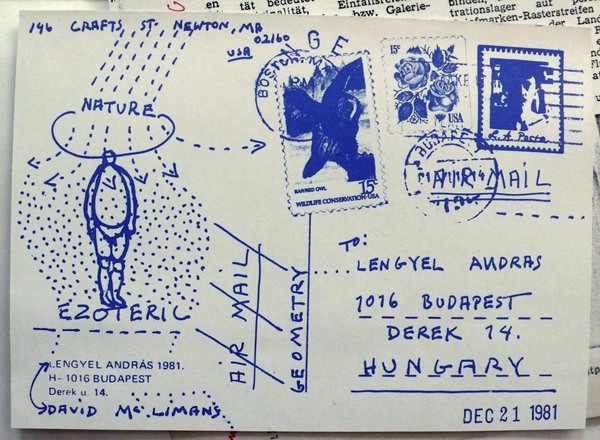 146 CRAFTS, ST. NEWTON, MA
02160
USA
NATURE
BOSTON, MA
AGE
15c
USA
BARRED OWL
15c
WILDLIFE CONSERVATION·USA
L.A. Posta
BUDAPEST
AIR MAIL
EZOTERIC
AIR MAIL
GEOMETRY
TO:
LENGYEL ANDRAS
1016 BUDAPEST
DEREK 14.
HUNGARY
LENGYEL ANDRÁS 1981.
H–1016 BUDAPEST
Derek u. 14.
DAVID Mc LIMANS
DEC 21 1981
en tät bedeutet
Einfallsreich
bzw. Galerie-
binden,
trationslager auf
Briefmarken-Rasterstreifen
der Land